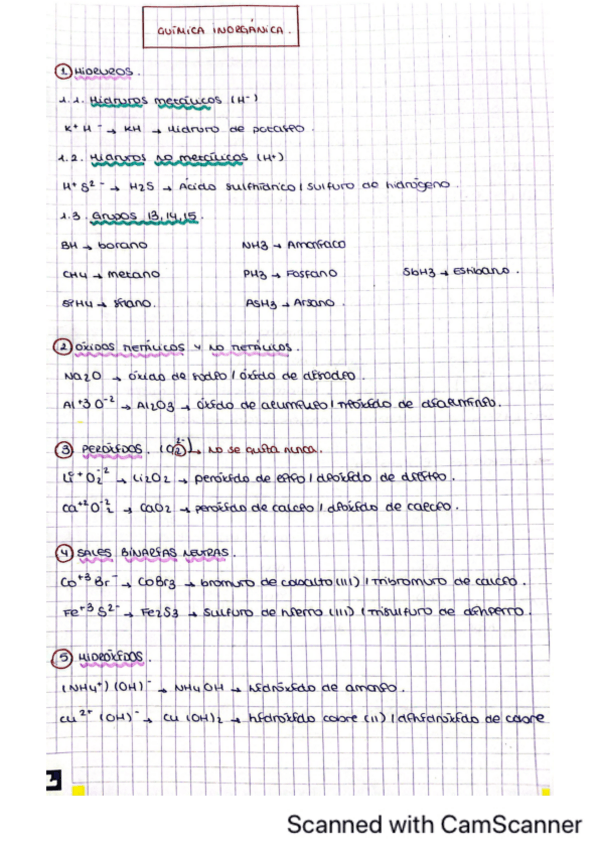 QUÍMICA INORGÁNICA.
① HIDRUROS.
1.1. Hidruros metálicos (H⁻)
K⁺ H⁻ → KH → Hidruro de potasio.
1.2. Hidruros no metálicos (H⁺)
H⁺ S²⁻ → H2S → Ácido sulfhídrico / sulfuro de hidrógeno.
1.3. Grupos 13, 14, 15.
BH → borano NH3 → Amoníaco
CH4 → metano PH3 → Fosfano SbH3 → Estibano.
SiH4 → silano. AsH3 → Arsano.
② ÓXIDOS METÁLICOS Y NO METÁLICOS.
Na2O → óxido de sodio / óxido de disodio.
Al⁺³ O⁻² → Al2O3 → óxido de aluminio / trióxido de dialuminio.
③ PERÓXIDOS. (O₂²⁻) → no se quita nunca.
Li⁺ O₂⁻² → Li2O2 → peróxido de litio / dióxido de dilitio.
Ca⁺² O₂⁻² → CaO2 → peróxido de calcio / dióxido de calcio.
④ SALES BINARIAS NEUTRAS.
Co⁺³ Br⁻ → CoBr3 → bromuro de cobalto (III) / tribromuro de calcio.
Fe⁺³ S²⁻ → Fe2S3 → sulfuro de hierro (III) / trisulfuro de dihierro.
⑤ HIDRÓXIDOS.
(NH4⁺) (OH)⁻ → NH4OH → hidróxido de amonio.
Cu²⁺ (OH)⁻ → Cu(OH)2 → hidróxido cobre (II) / dihidróxido de cobre
Scanned with CamScanner